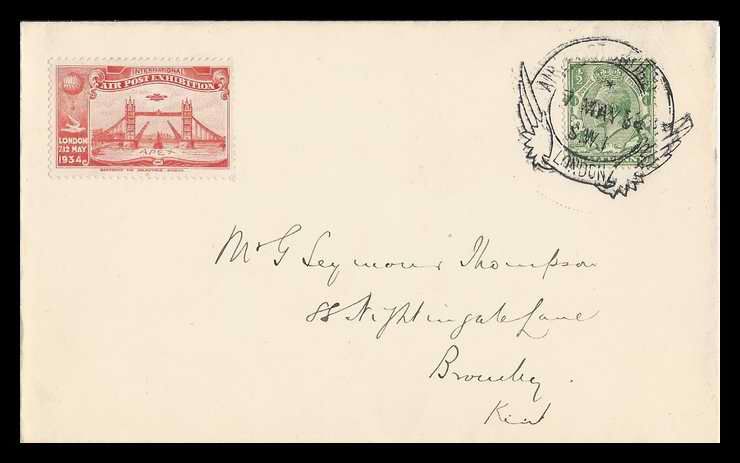 INTERNATIONAL
AIR POST EXHIBITION
LONDON
7-12 MAY
1934
APEX
½
MAY 34
S.W.1
LONDON
Mr G Seymour Thompson
88 Nightingale Lane
Bromley.
Kent